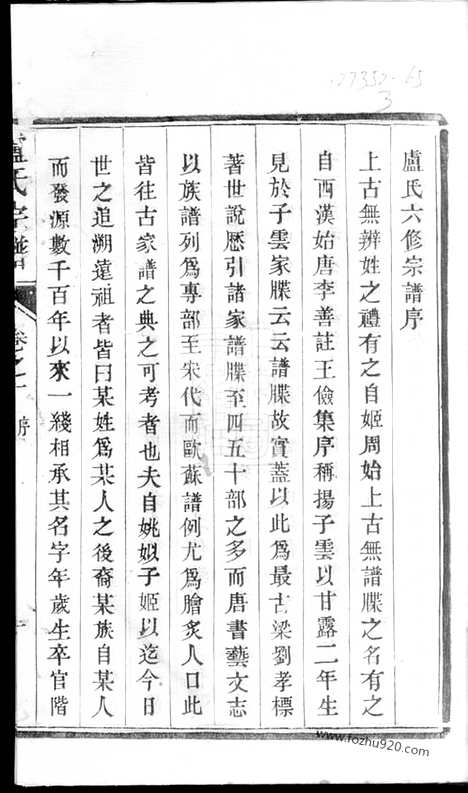 27352-65
3
盧氏六修宗譜序
上古無辨姓之禮有之自姬周始上古無譜牒之名有之
自西漢始唐李善註王儉集序稱揚子雲以甘露二年生
見於子雲家牒云云譜牒故實蓋以此爲最古梁劉孝標
著世說歷引諸家譜牒至四五十部之多而唐書藝文志
以族譜列爲專部至宋代而歐蘇譜例尤爲膾炙人口此
皆往古家譜之典之可考者也夫自姚姒子姬以迄今日
世之追溯遠祖者皆曰某姓爲某人之後裔某族自某人
而發源數千百年以來一綫相承其名字年歲生卒官階
盧氏宗譜
卷之一
序
一
www.fozhu920.com